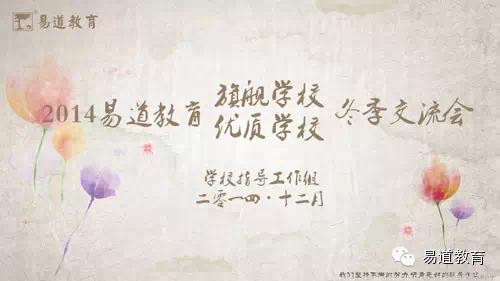 易道教育
2014易道教育 旗舰学校 优质学校 冬季交流会
学校指导工作组
二零一四·十二月
易道教育